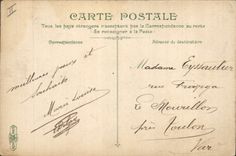 II
CARTE POSTALE
Tous les pays étrangers n'acceptent pas la Correspondance au recto
Se renseigner à la Poste
Correspondance
Adresse du destinataire
meilleurs vœux et
souhaits
Marie Louise
Madame Eyssautier
rue
Le Mourillon
près Toulon
Var